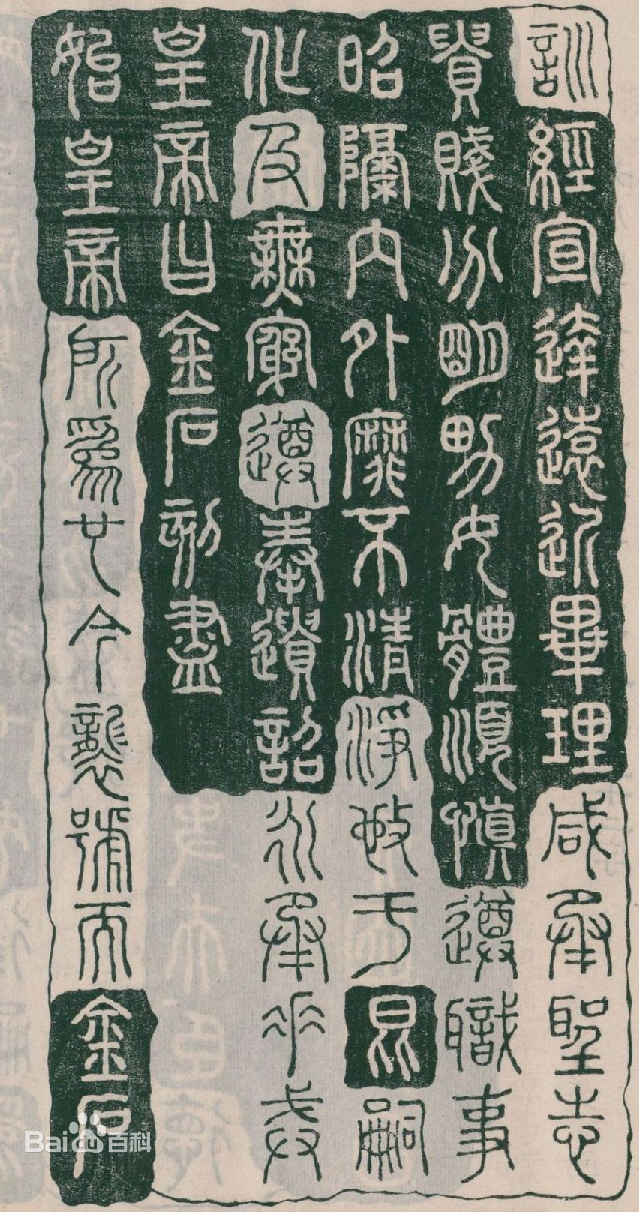 訓經宣達遠近畢理咸承聖志
貴賤分明男女體順慎遵職事
昭隔內外靡不清淨施于昆嗣
化及無窮遵奉遺詔永承重戒
皇帝曰金石刻盡
始皇帝所為也今襲號而金石
Bai百科